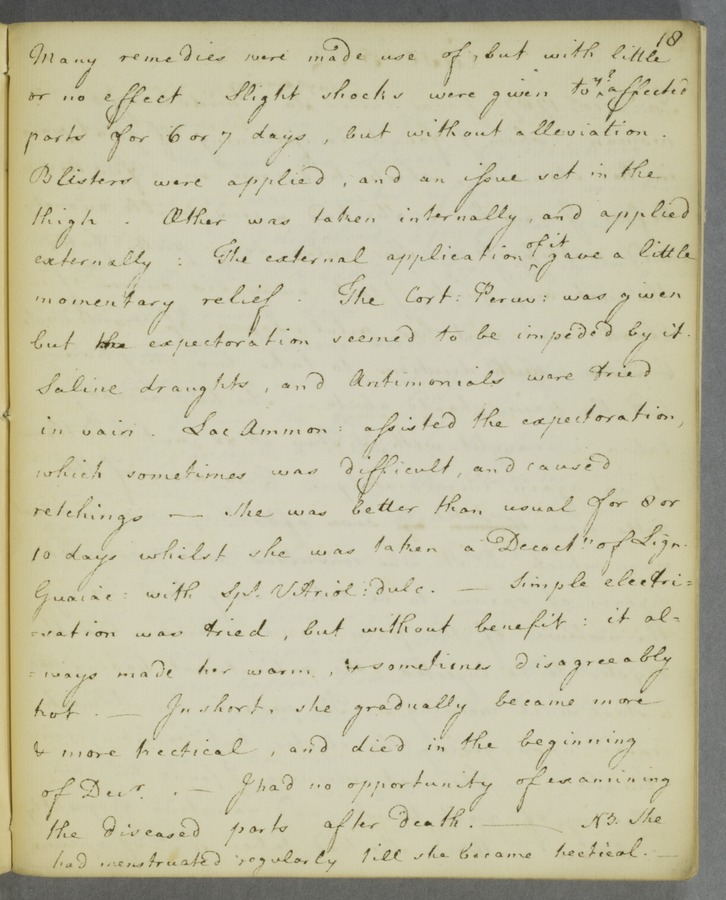 18
Many remedies were made use of, but with little
or no effect. Slight shocks were given to ye affected
parts for 6 or 7 days, but without alleviation.
Blisters were applied, and an issue set in the
thigh. Æther was taken internally, and applied
externally: The external application of it gave a little
momentary relief. The Cort: Peruv: was given
but the expectoration seemed to be impeded by it.
Saline draughts, and Antimonials were tried
in vain. Lac Ammon: assisted the expectoration,
which sometimes was difficult, and caused
retchings — She was better than usual for 8 or
10 days whilst she was taken a Decoctn of Lign.
Guaiac: with Spt. Vitriol: dulc. — Simple electri=
=sation was tried, but without benefit: it al=
=ways made her warm, & sometimes disagreeably
hot. — In short, she gradually became more
& more hectical, and died in the beginning
of Decr. — I had no opportunity of examining
the diseased parts after death. — NB. She
had menstruated regularly till she became hectical. —